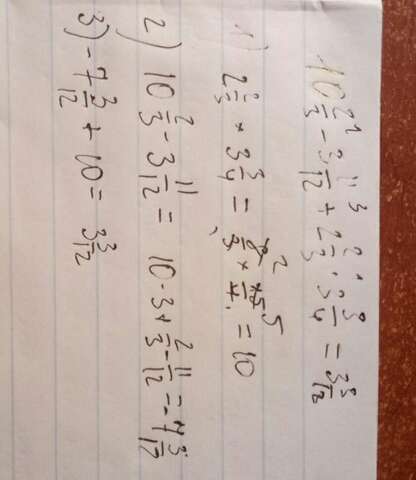 10 2/3 - 3 11/12 + 2 2/3 · 3 3/4 = 3 3/12
1) 2 2/3 * 3 3/4 = 8/3 * 15/4 = 10
2) 10 2/3 - 3 11/12 = 10 - 3 + 2/3 - 11/12 = -7 3/12
3) -7 3/12 + 10 = 3 3/12